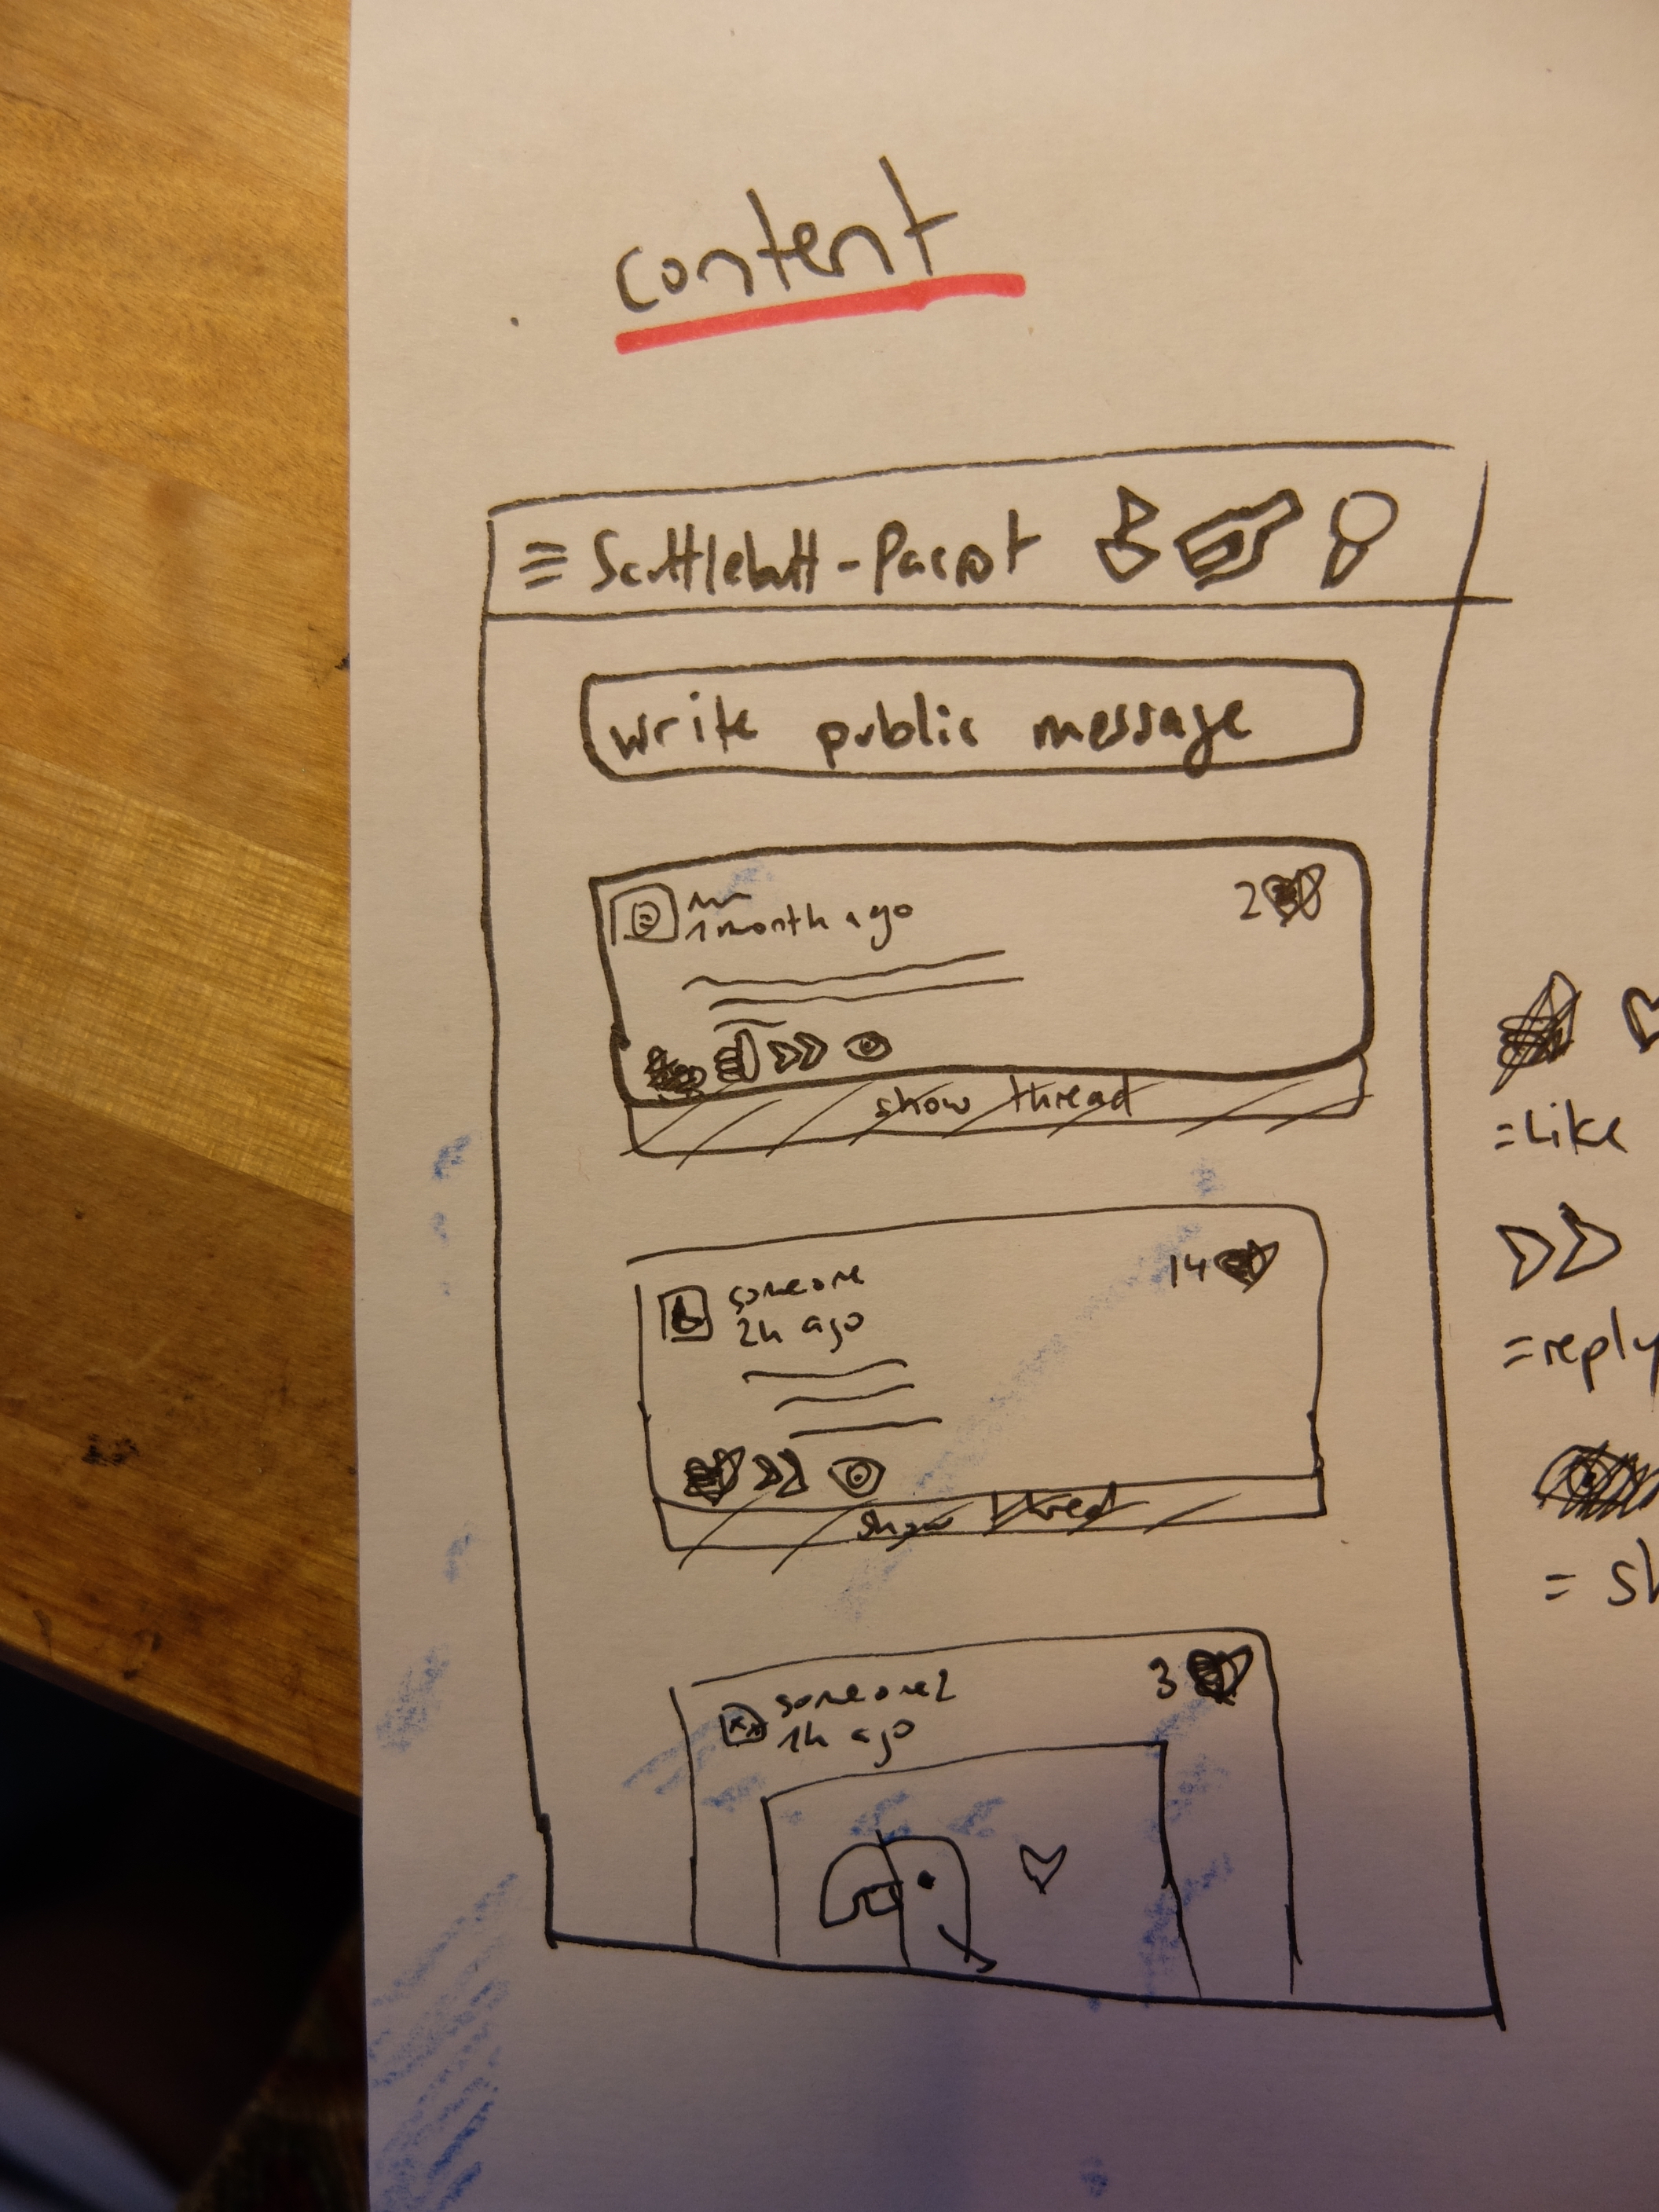 content
Scuttlebutt-Parrot
write public message
1 month ago
2
show thread
someone
2h ago
14
show thread
someone2
1h ago
3
=Like
=reply
=